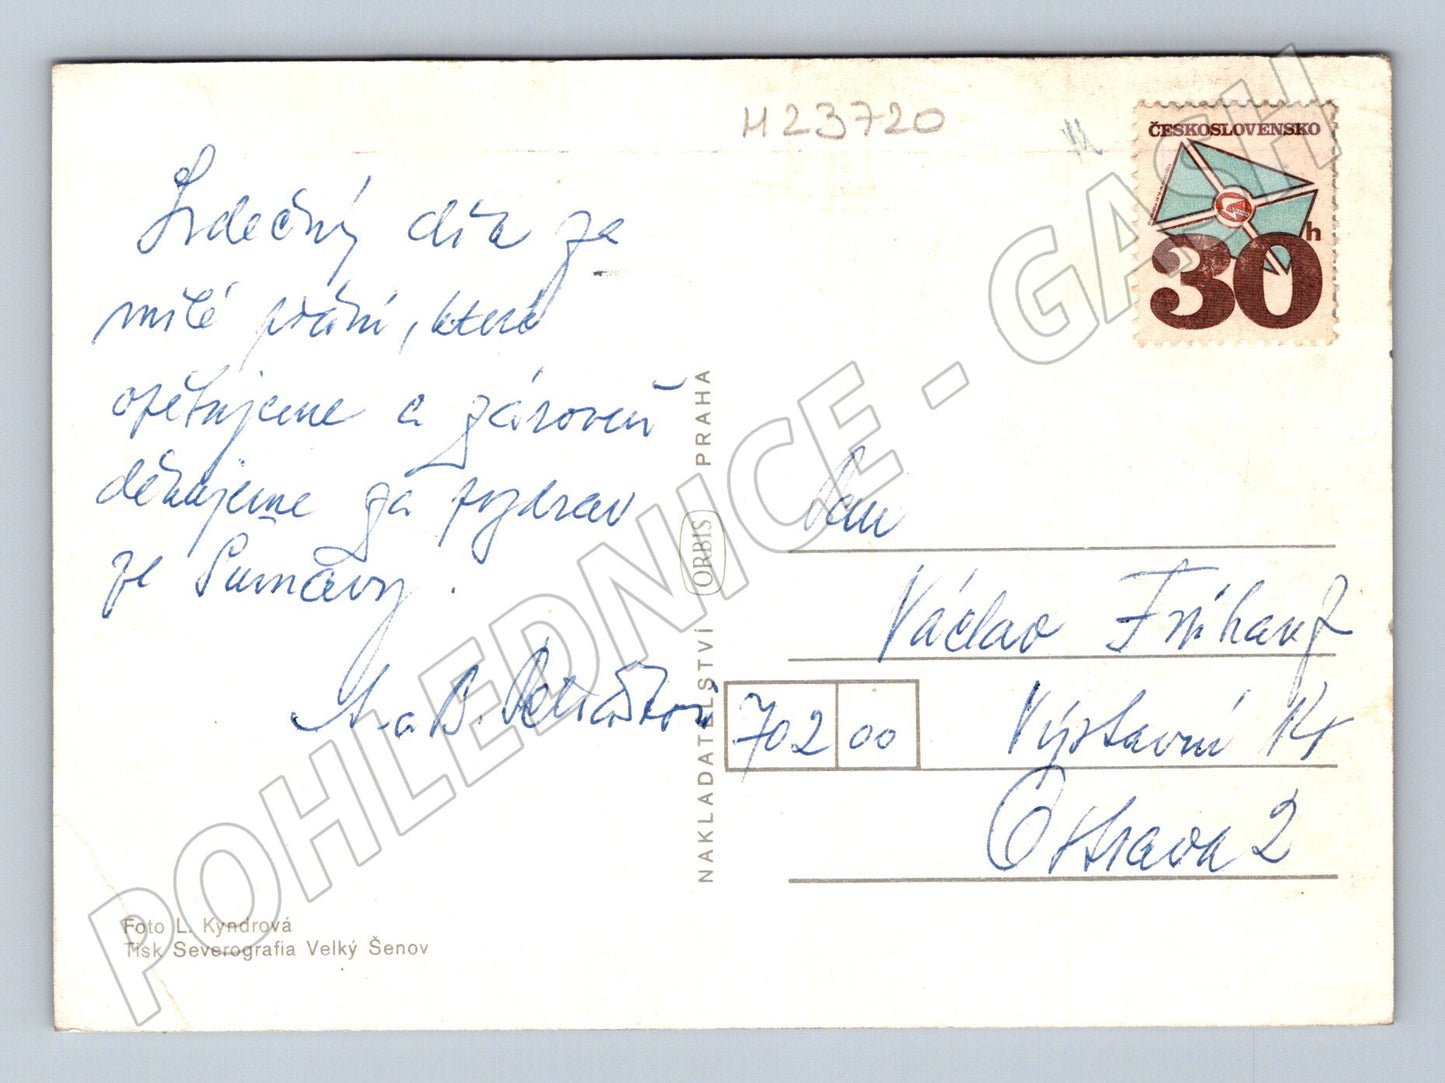 M23720
ČESKOSLOVENSKO
30 h
Srdečný dík za
milé přání, které
opětujeme a zároveň
děkujeme za pozdrav
ze Šumavy.
a B.
NAKLADATELSTVÍ ORBIS PRAHA
Pan
Václav
702 00 Výstavní 14
Ostrava 2
Foto L. Kyndrová
Tisk Severografia Velký Šenov
POHLEDNICE - GASH